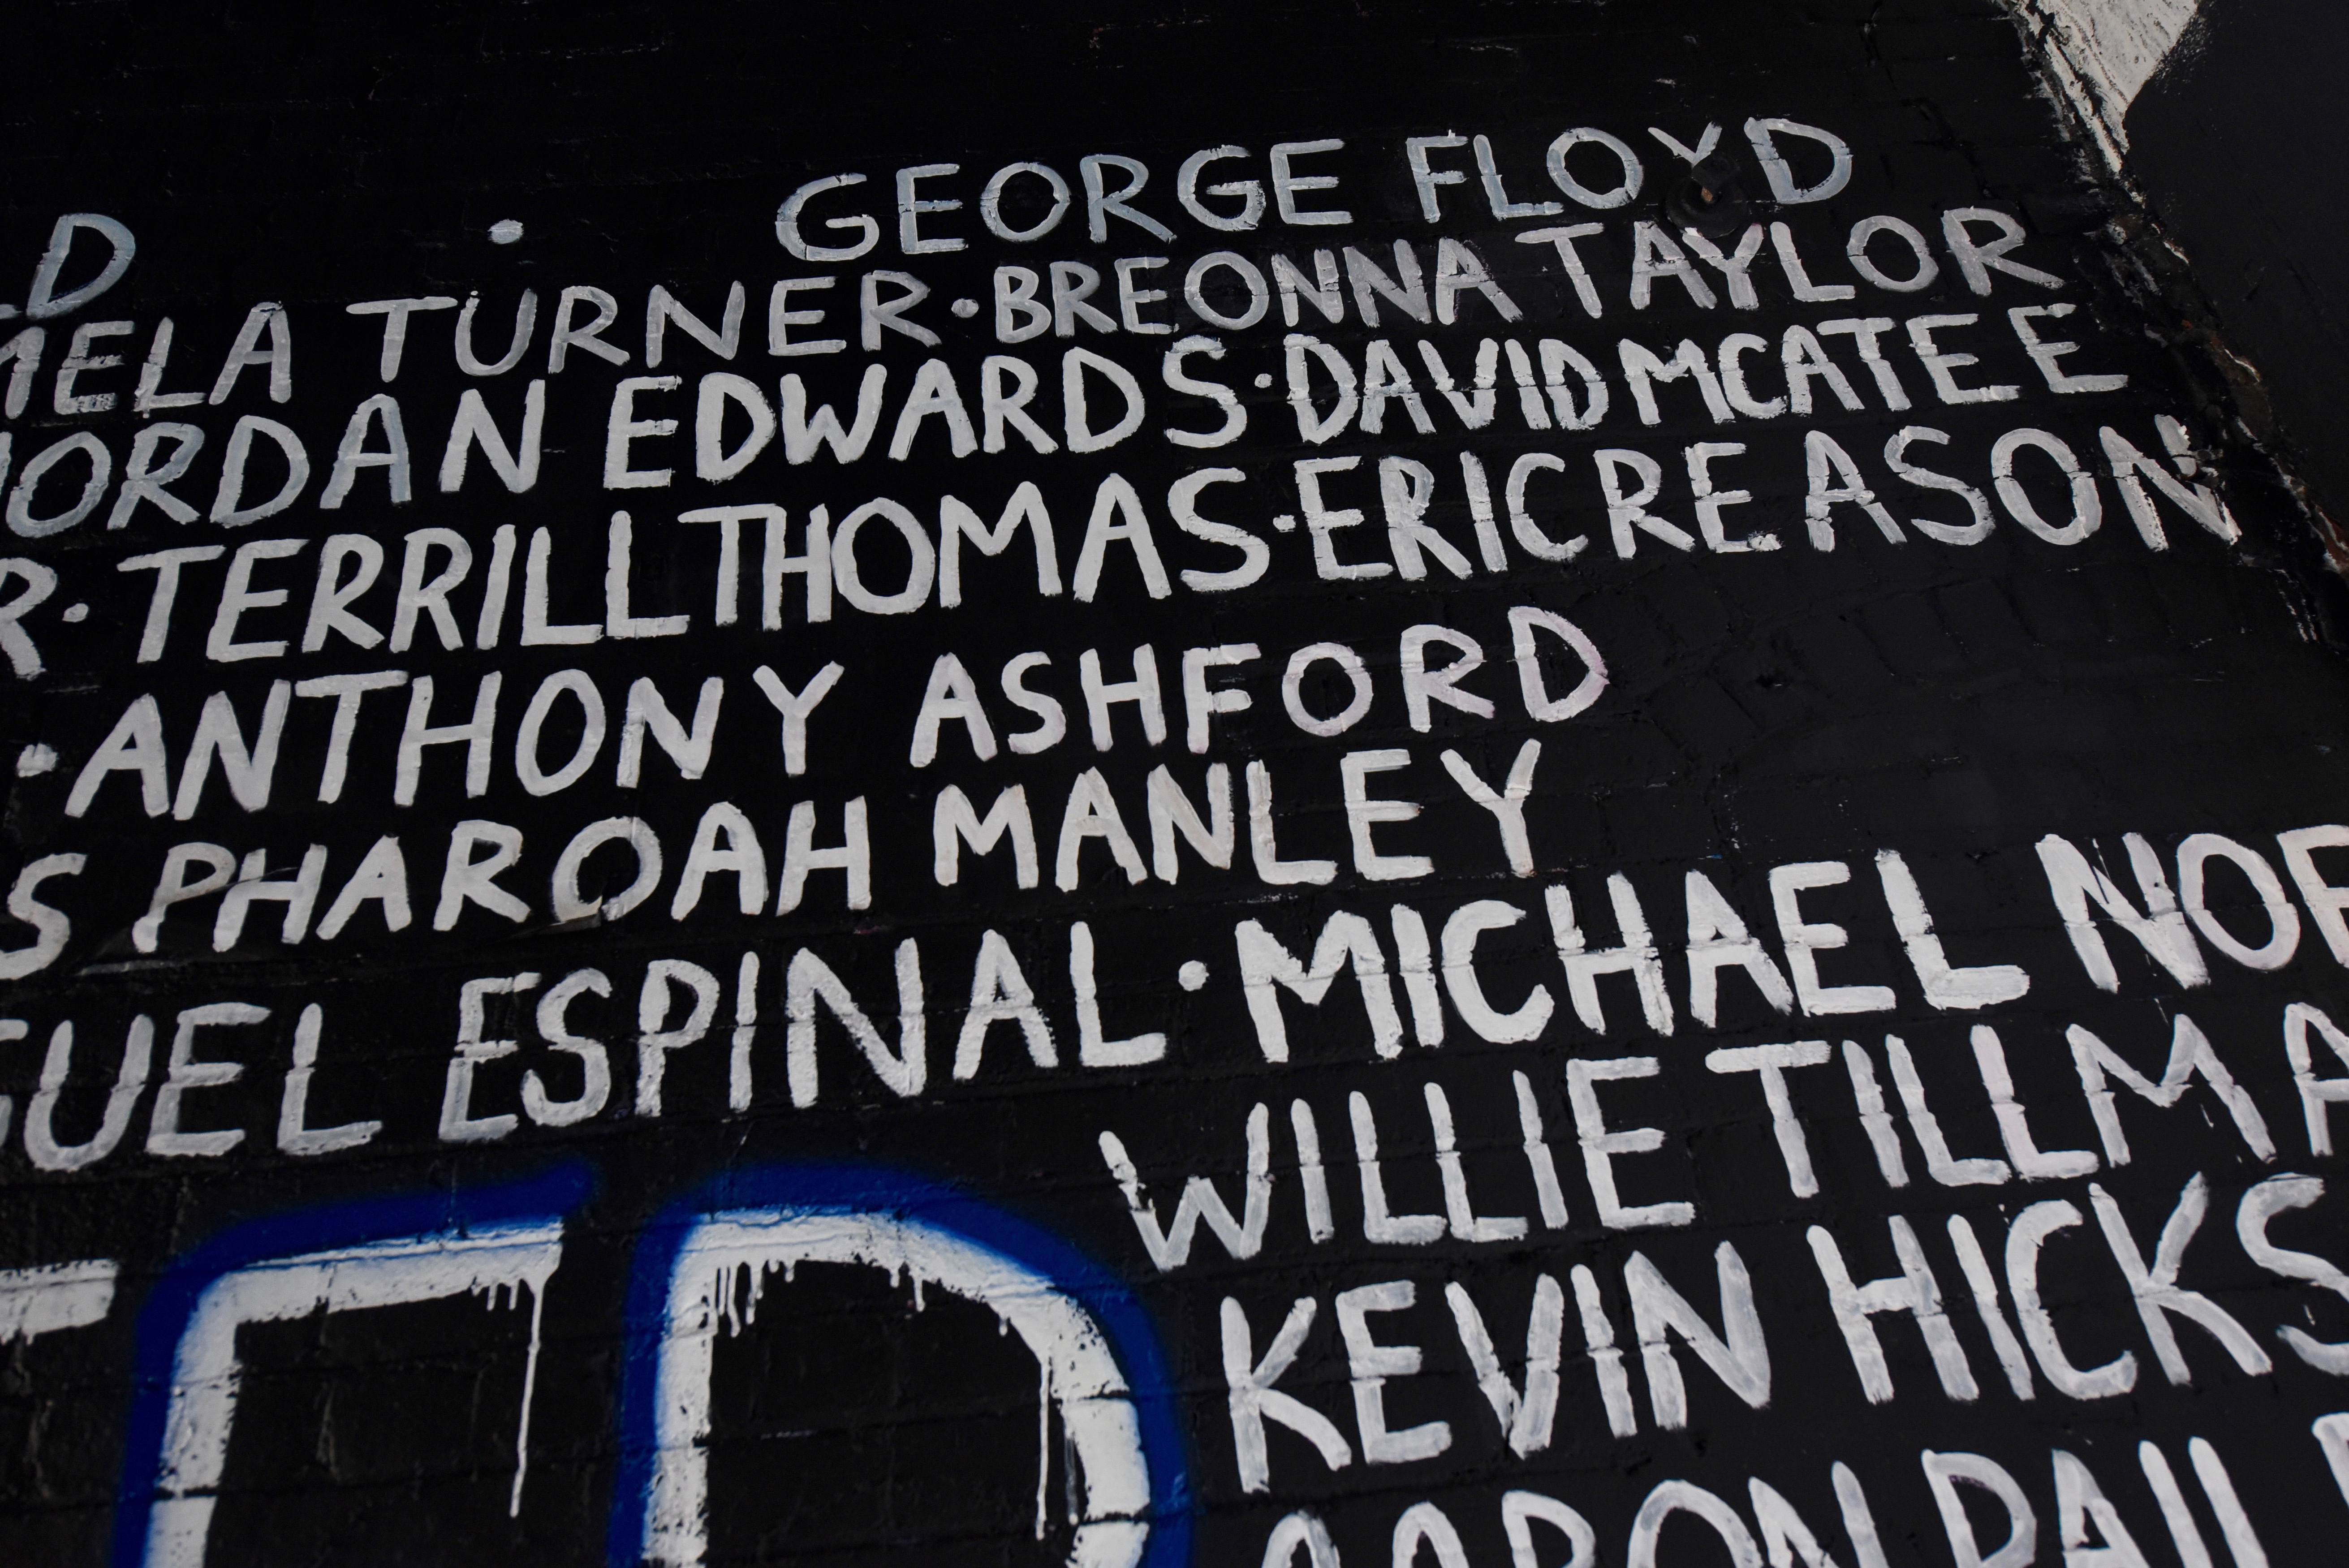 GEORGE FLOYD
TURNER · BREONNA TAYLOR
JORDAN EDWARDS · DAVID MCATEE
· TERRILL THOMAS · ERIC REASON
· ANTHONY ASHFORD
PHAROAH MANLEY
ESPINAL · MICHAEL
WILLIE
KEVIN HICKS
AARON